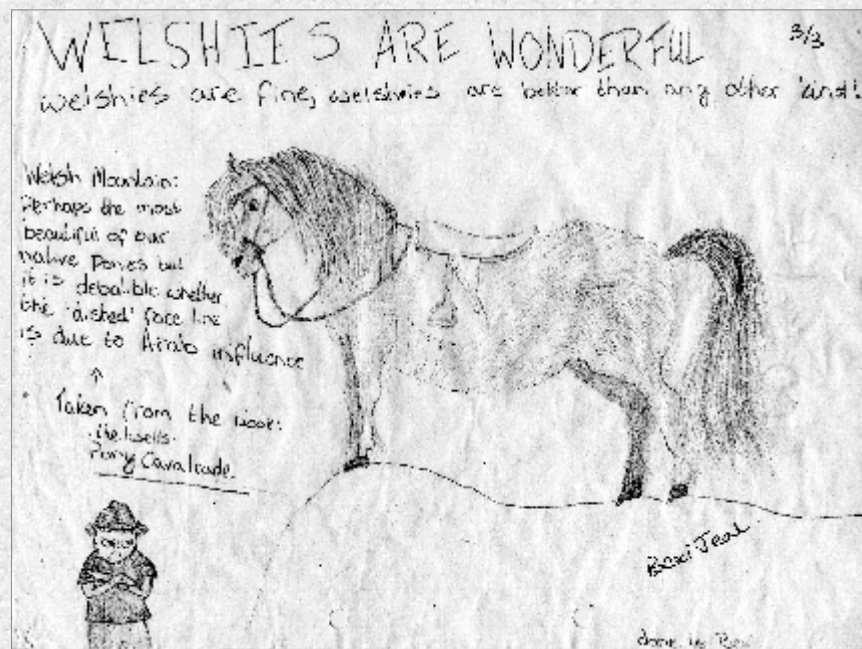 WELSHIES ARE WONDERFUL
3/3
welshies are fine, welshies are better than any other kind!
Welsh Mountain:
Perhaps the most
beautiful of our
native Ponies but
it is debatible whether
the 'dished' face line
is due to Arab influence
Taken from the book:
Pony Cavalcade.
Bexi Jeal
done by Bexi